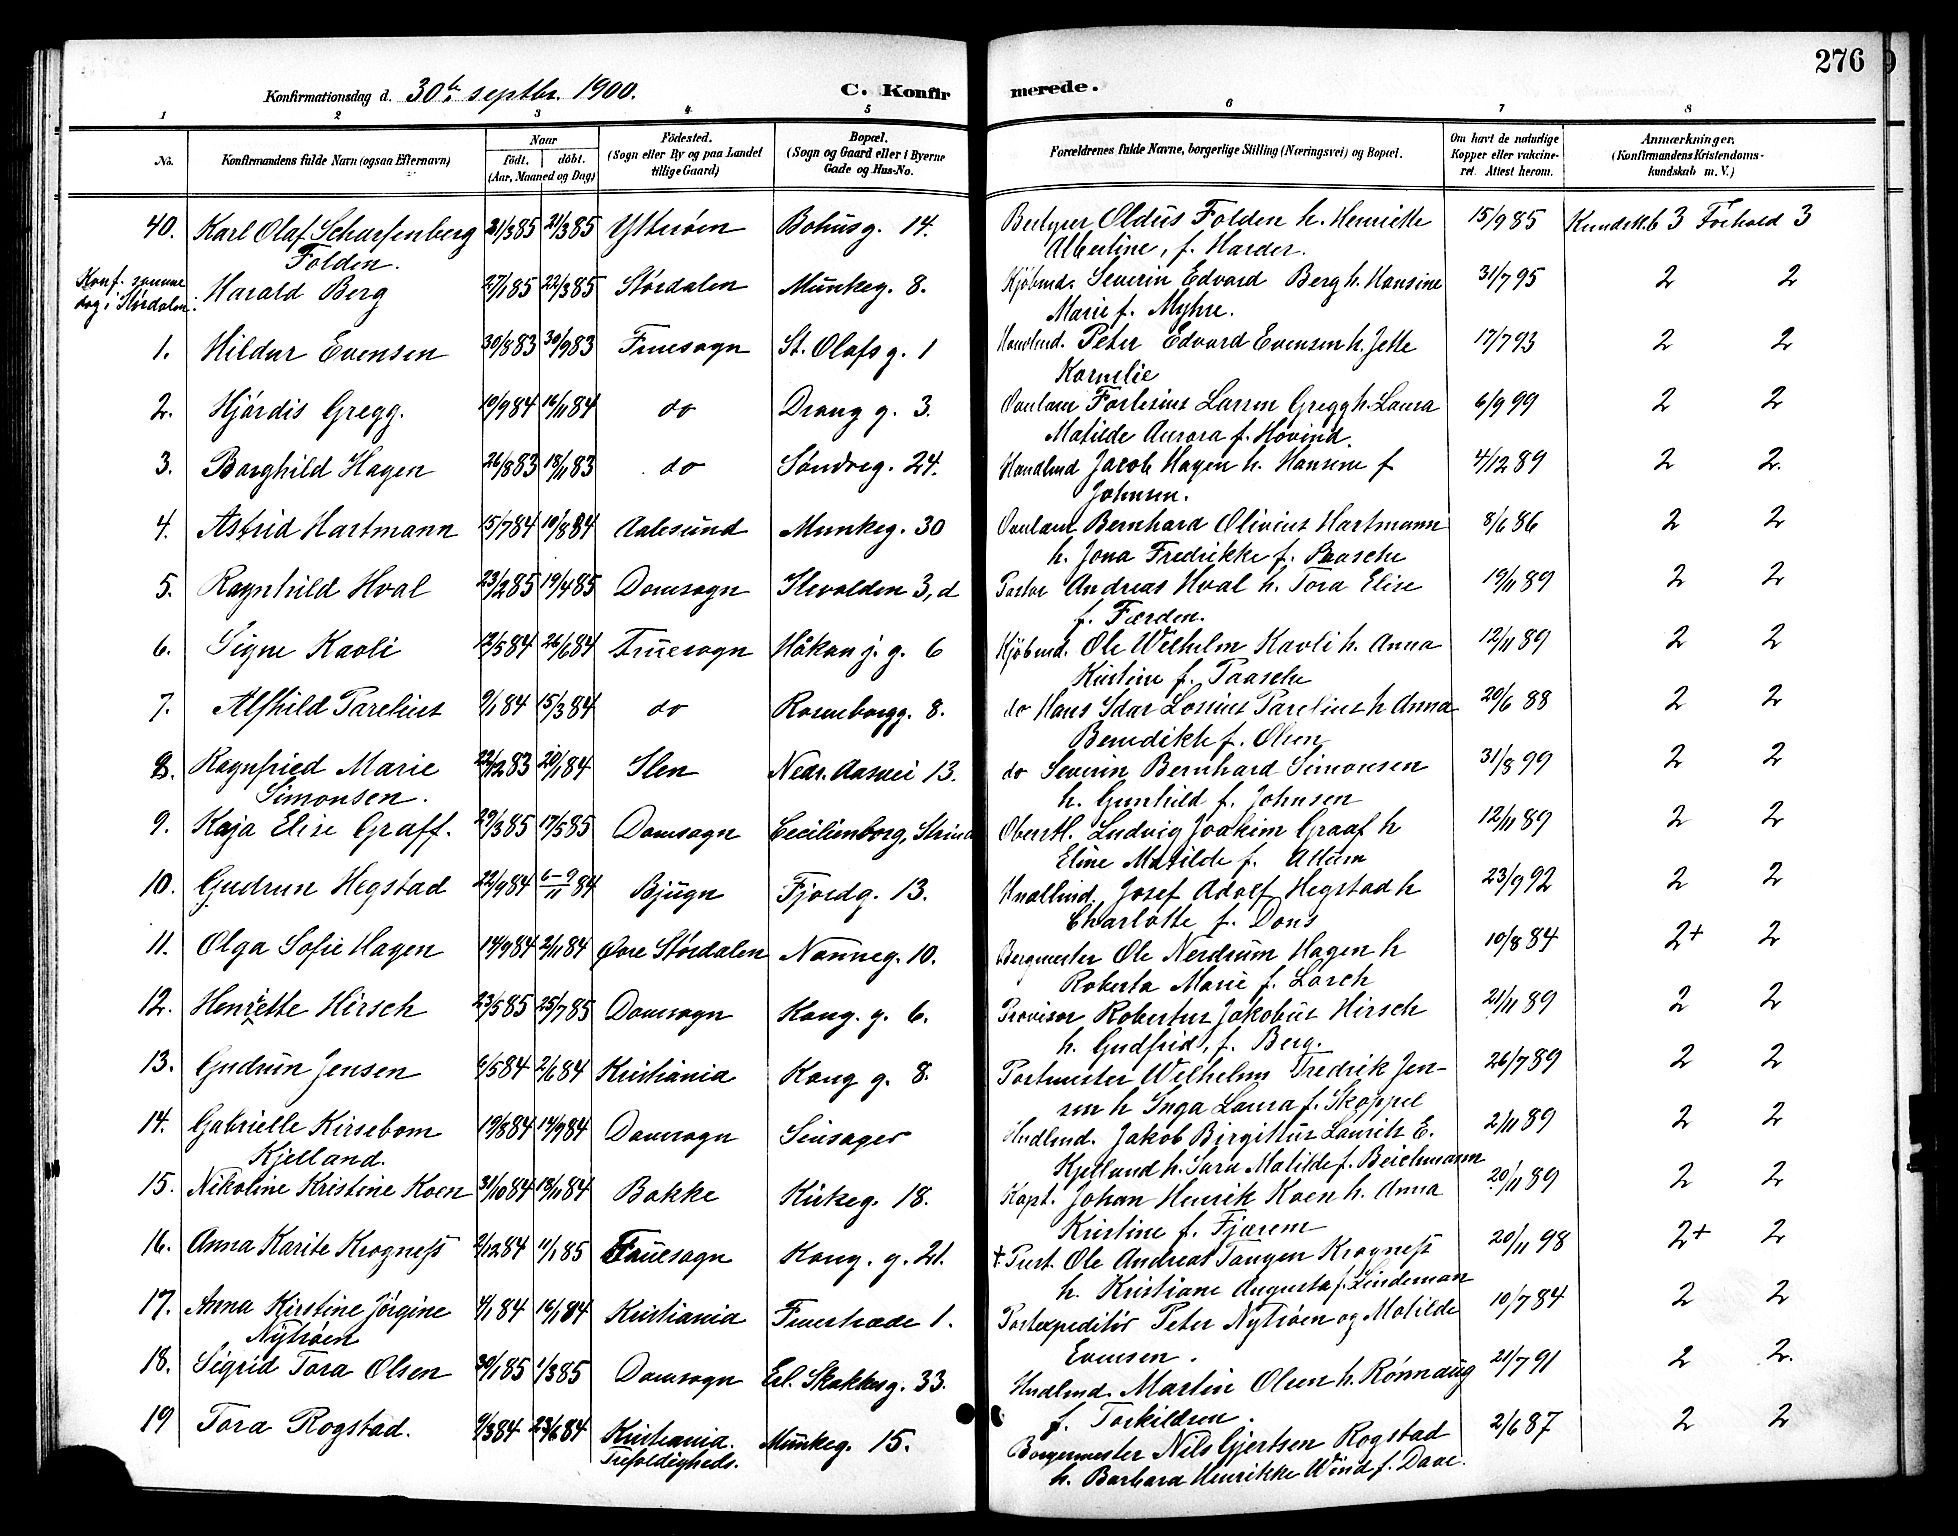 276
Konfirmationsdag d. 30te septbr. 1900. C. Konfirmerede.
1 2 3 4 5 6 7 8
No. Konfirmandens fulde Navn (ogsaa Efternavn) Naar födt. döbt. (Aar, Maaned og Dag) Födested. (Sogn eller By og paa Landet tillige Gaard) Bopæl. (Sogn og Gaard eller i Byerne Gade og Hus-No. Forældrenes fulde Navne, borgerlige Stilling (Næringsvei) og Bopæl. Om havt de naturlige Kopper eller vakcineret. Attest herom. Anmærkninger. (Konfirmandens Kristendomskundskab m. V.)
40. Karl Olaf Scharfenberg 21/3 85 Ytterøen Bohusg. 14. Oldus Folden h. Henrikke 15/9 85 Kundsk. 3 Forhold 3
Folden. Albertine, f. Harder.
Konf. samme
dag i Størdalen. Harald Berg 27/1 85 22/3 85 Størdalen Munkeg. 8. Kjøbmd. Severin Edvard Berg h. Hansine 31/7 95 2 2
Marie f. Myhre.
1. Hildur Evensen 30/8 83 30/9 83 Fruesogn St. Olafs g. 1 Handlmd. Peter Edvard Evensen h. Jette 17/7 93 2 2
Kornelie
2. Hjørdis Gregg. 10/9 84 16/11 84 do Drong g. 3. Larsen Gregg h. Laura 6/9 99 2 2
Matilde Aurora f. Hovind.
3. Borghild Hagen 26/8 83 18/11 83 do Søndreg. 24. Handlmd Jacob Hagen h. Hansine f 4/12 89 2 2.
Johnsen.
4. Astrid Hartmann 15/7 84 10/8 84 Aalesund Munkeg. 30 Overlær. Bernhard Olivius Hartmann 8/6 86 2 2
h. Jona Fredrikke f. Paasche
5. Ragnhild Hval 23/2 85 19/4 85 Domsogn Ilevolden 3, d Pastor Andreas Hval h. Tora Elise 19/11 89 2 2
f. Færden.
6. Signe Kavli 12/5 84 26/6 84 Fruesogn Håkon j. g. 6 Kjøbmd. Ole Wilhelm Kavli h. Anna 12/11 89 2 2
Kristine f. Paasche
7. Alfhild Parelius 9/1 84 15/3 84 do Rosenborgg. 8. do Hans Idar Lossius Parelius h Anna 20/6 88 2 2
Benedikte f. Olsen
8. Ragnfried Marie 22/12 83 20/1 84 Ilen Nedr. Aasvei 13. do Severin Bernhard Simonsen 31/8 99 2 2
Simonsen. h. Gunhild f. Johnsen
9. Kaja Elise Graff. 29/3 85 17/5 85 Domsogn Cecilienborg, Strind Oberstl. Ludvig Joakim Graaf h 12/11 89 2 2
Eline Matilde f. Allum
10. Gudrun Hegstad 22/9 84 6-9/11 84 Bjugn Fjordg. 13. Hndlmd. Josef Adolf Hegstad h 23/9 92 2 2
Charlotte f. Dons
11. Olga Sofie Hagen 14/9 84 2/11 84 Øvre Størdalen Nonneg. 10. Bergmester Ole Nerdrum Hagen h 10/8 84 2+ 2
Roberta Marie f. Lorch
12. Henriette Hirsch 23/5 85 25/7 85 Domsogn Kong. g. 6. Provisor Robertus Jakobus Hirsch 21/11 89 2 2
h. Gudfrid, f. Berg.
13. Gudrun Jensen 6/5 84 2/6 84 Kristiania Kong g. 8. Postmester Wilhelm Fredrik Jen- 26/7 89 2 2
sen h Inga Laura f. Skoppel
14. Gabrielle Kirsebom 19/8 84 14/9 84 Domsogn Sinsager Hndlmd. Jakob Birgittus Laurits E. 2/11 89 2 2
Kjelland. Kjelland h. Sara Matilde f. Beichmann
15. Nikoline Kristine Koen 31/10 84 13/11 84 Bakke Kirkeg. 18. Kapt. Johan Henrik Koen h. Anna 20/11 89 2 2
Kristine f. Fjærem
16. Anna Karite Krogness 2/12 84 11/1 85 Fruesogn Kong. g. 21. + Prest. Ole Andreas Tangen Krogness 20/11 98 2+ 2
h. Kristiane Augusta f. Lindeman
17. Anna Kirstine Jörgine 4/1 84 16/1 84 Kristiania Fruestræde 1. Postexpeditör Peter Nytrøen og Matilde 10/7 84 2 2
Nytrøen Evensen.
18. Sigrid Tora Olsen 30/1 85 1/3 85 Domsogn Erl. Skakkes g. 33. Hndlmd. Martin Olsen h. Rønnaug 21/7 91 2 2.
f. Torkildsen.
19 Tora Rogstad. 9/3 84 23/6 84 Kristiania. Munkeg. 15. Borgermester Nils Gjertsen Rogstad 2/6 87 2 2
Trefoldigheds. h. Barbara Henrikke Wind f. Daae.